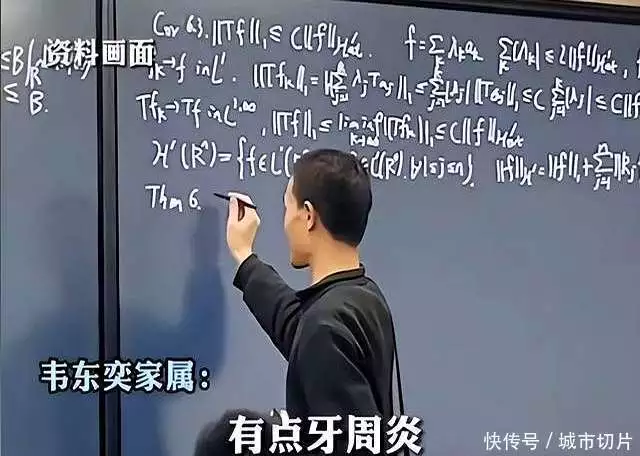 资料画面
≤B
≤ B.
Cor 6.3. ||Tf||₁ ≤ C||f||_{H'at}. f=∑_k λ_k a_k ∑_k|λ_k| ≤ 2||f||_{H'at},
f_k→f in L'. ||Tf_k||₁=||∑_{j=1}^k λ_j Ta_j||₁ ≤ ∑_{j=1}^k|λ_j| ||Ta_j||₁ ≤ C∑_{j=1}^k|λ_j| ≤ C||f
Tf_k→Tf in L^{1,∞}, ||Tf||₁ ≤ liminf_{k→∞}||Tf_k||₁ ≤ C||f||_{H'at}
H'(Rⁿ)={f∈L'(R f∈L'(Rⁿ). ∀1≤j≤n}. ||f||_{H'}=||f||₁+∑_{j=1}^n||R_j
Thm 6.
韦东奕家属：
有点牙周炎
快传号／城市切片